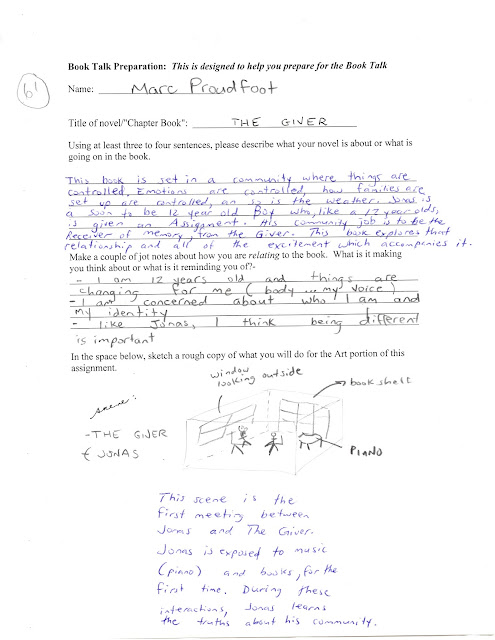 Book Talk Preparation: This is designed to help you prepare for the Book Talk
b1
Name: Marc Proudfoot
Title of novel/"Chapter Book": THE GIVER
Using at least three to four sentences, please describe what your novel is about or what is
going on in the book.
This book is set in a community where things are
controlled. Emotions are controlled, how families are
set up are controlled, an so is the weather. Jonas is
a soon to be 12 year old Boy who, like a 12 year olds,
is given an Assignment. His community job is to be the
Receiver of memory from the Giver. This book explores that
relationship and all of the excitement which accompanies it.
Make a couple of jot notes about how you are relating to the book. What is it making
you think about or what is it reminding you of?-
- I am 12 years old and things are
changing for me (body ... my voice)
- I am concerned about who I am and
my identity
- like Jonas, I think being different
is important
In the space below, sketch a rough copy of what you will do for the Art portion of this
assignment.
window
looking outside
book shelf
scene:
-THE GIVER
& JONAS
PIANO
This scene is the
first meeting between
Jonas and The Giver.
Jonas is exposed to music
(piano) and books, for the
first time. During these
interactions, Jonas learns
the truths about his community.